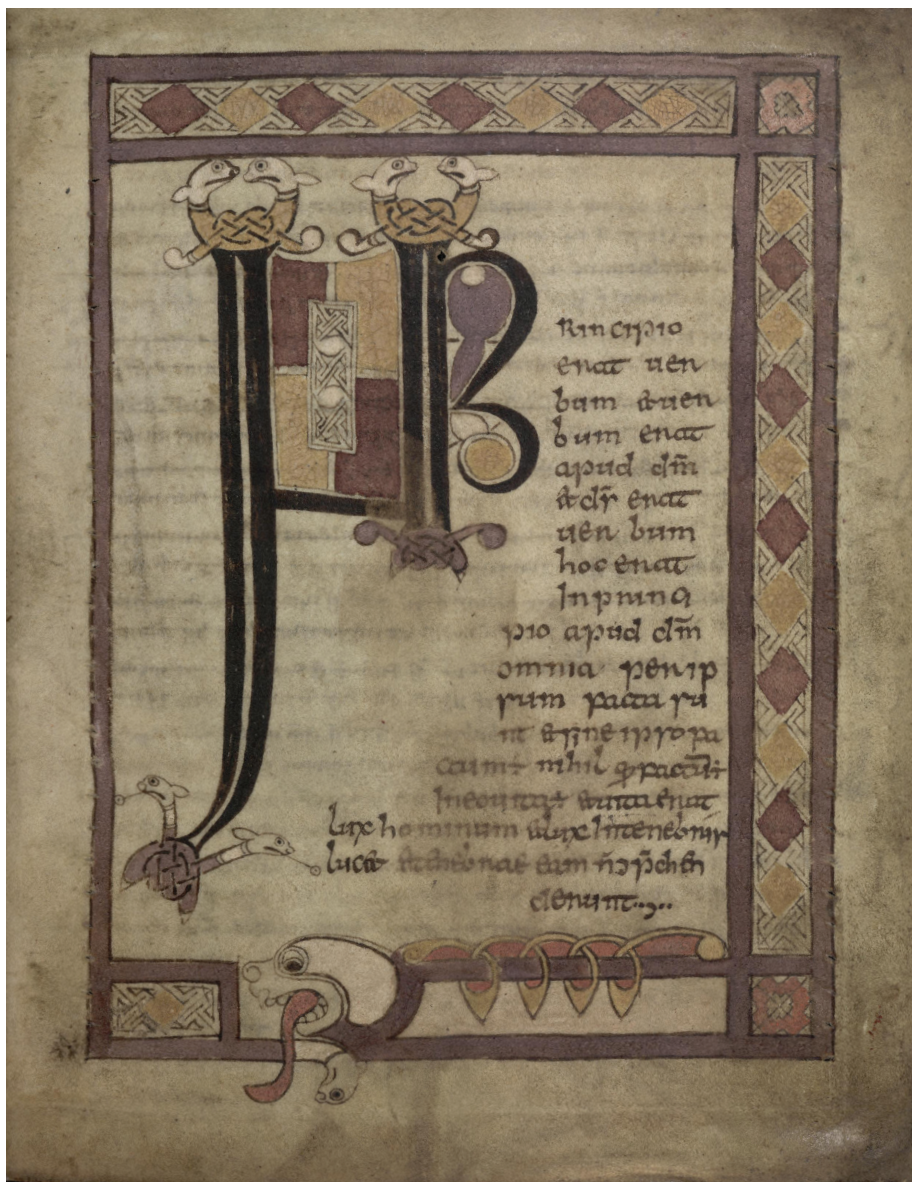 INP
Rincipio
erat uer
bum & uer
bum erat
apud dm̄
& ds̄ erat
uer bum
hoc erat
Inprinci
pio apud dm̄
omnia per ip
sum facta su
nt & sine ipso fa
ctum ÷ nihil factum ÷
In eo uita ÷ & uita erat
lux hominum & lux In tenebris
luc& & tenebrae eam n̄ p̄chen
derunt